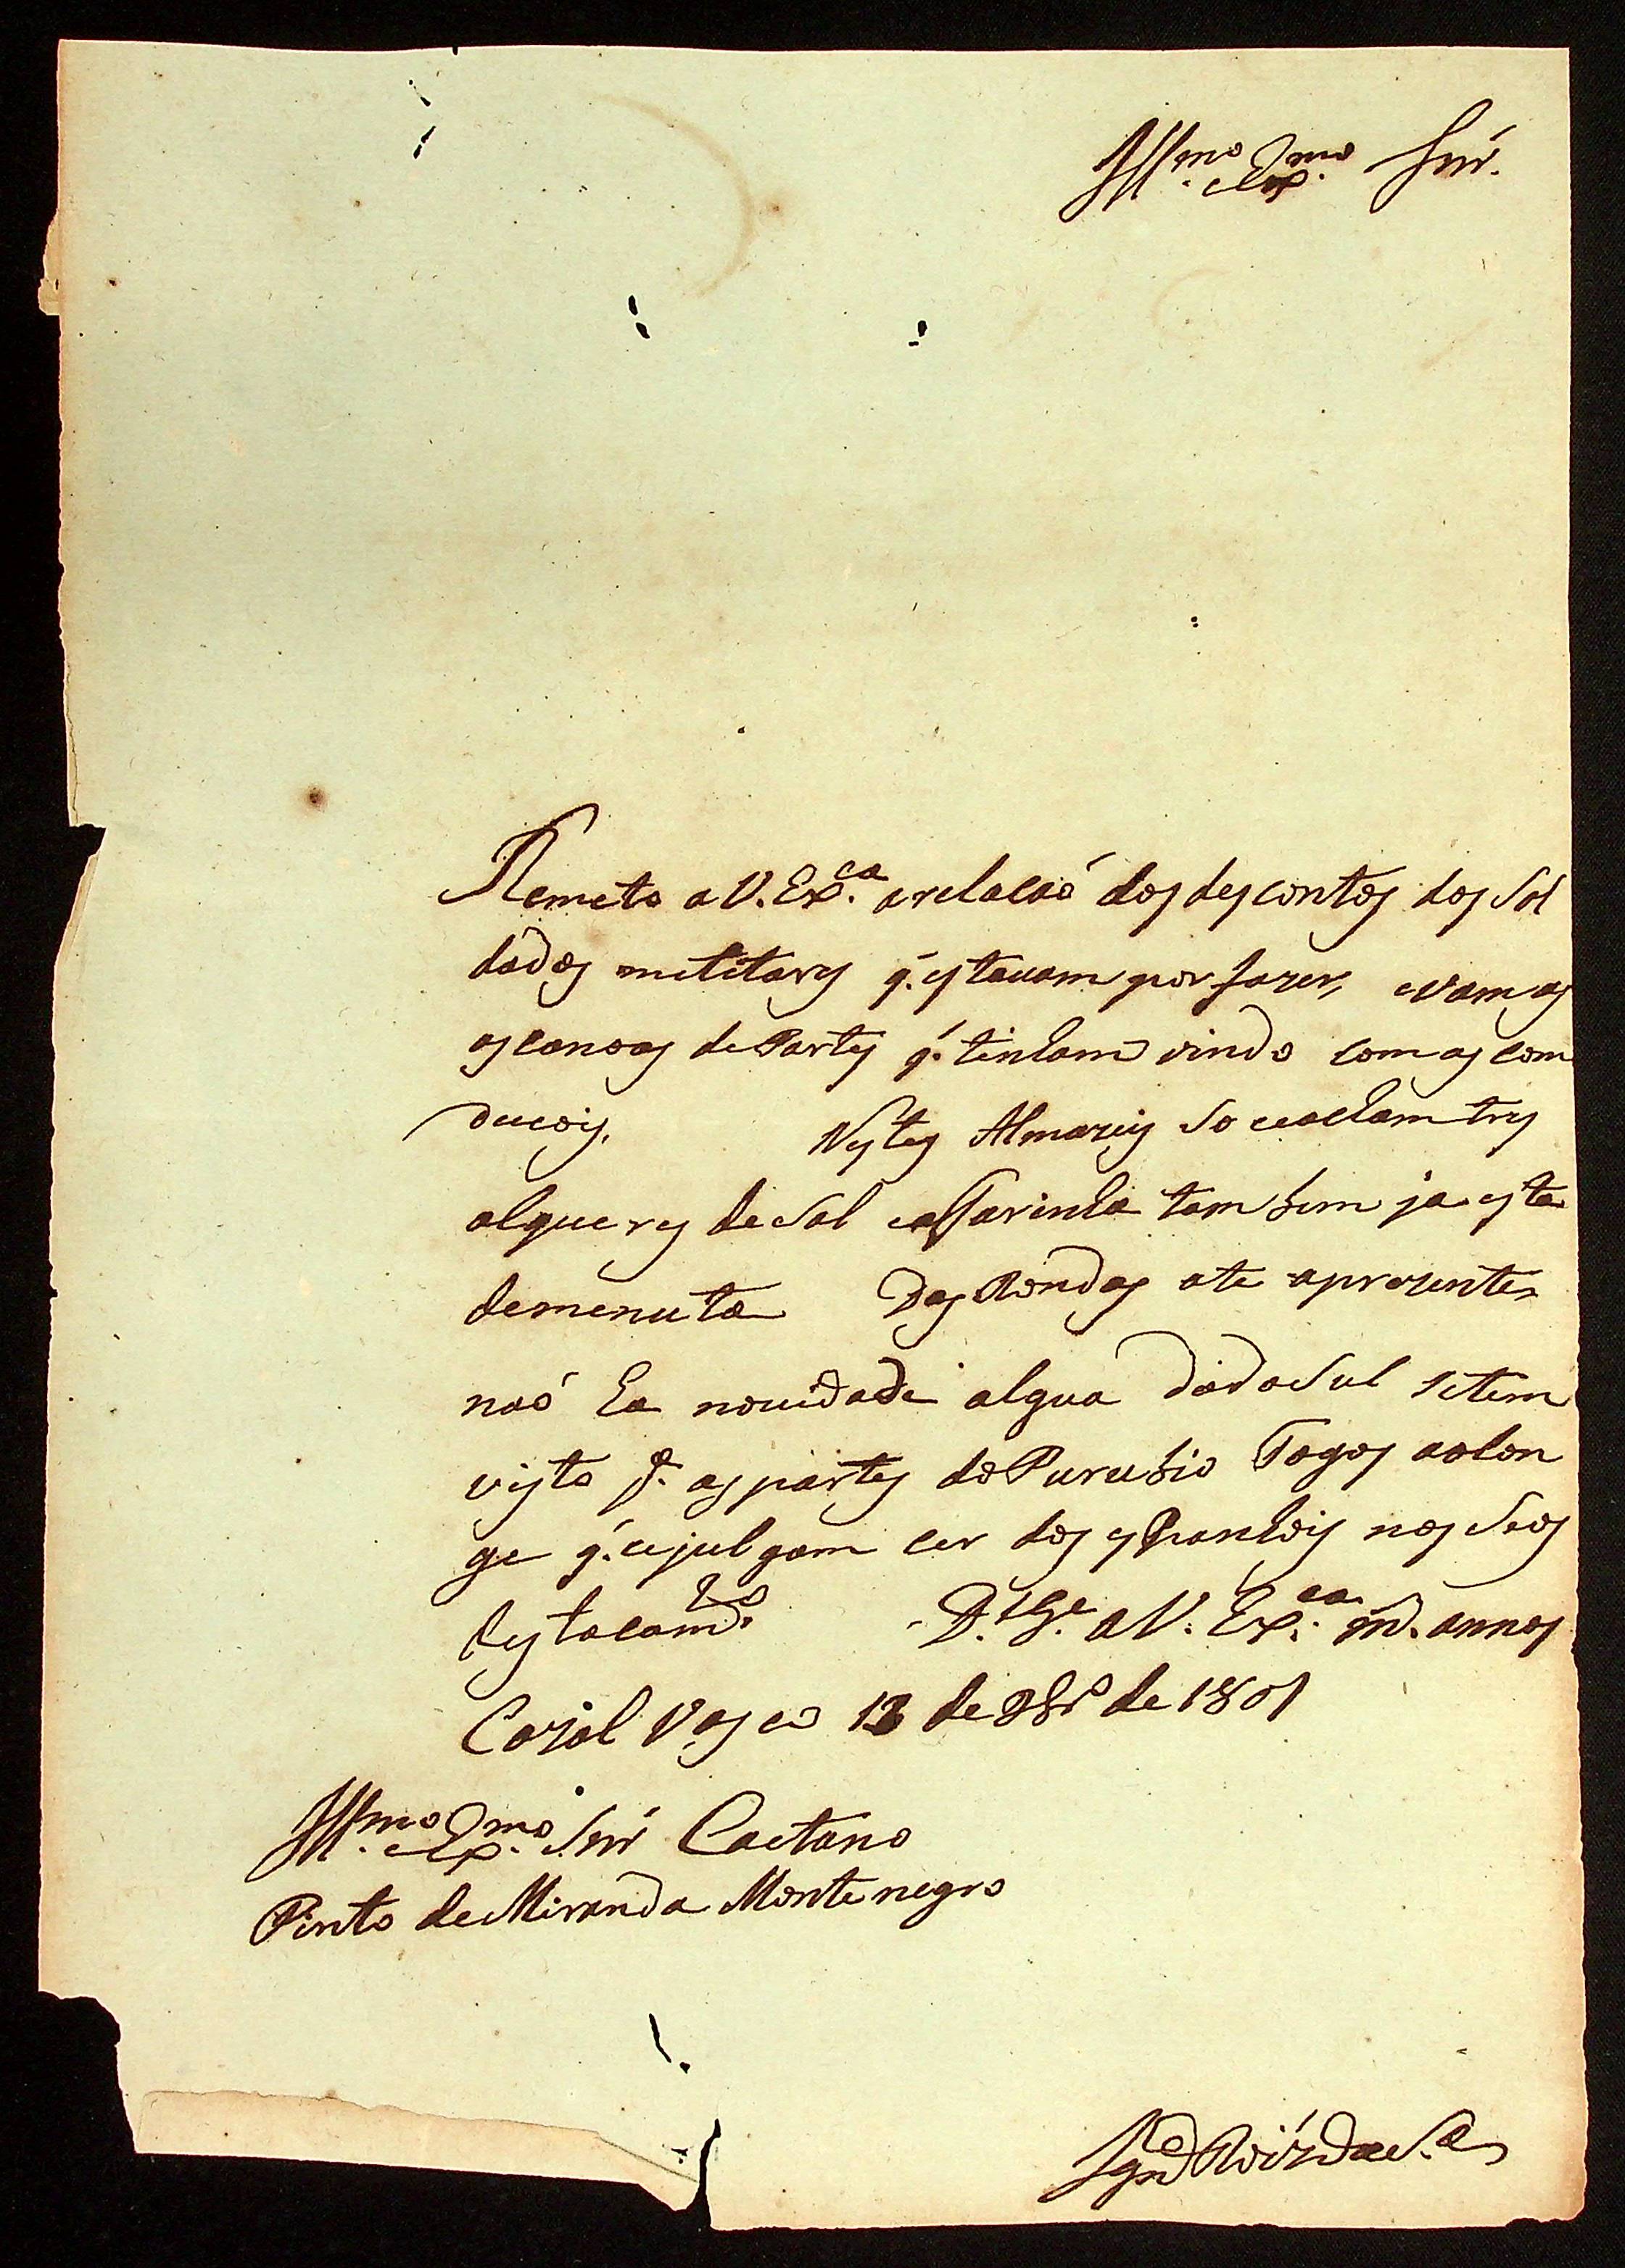 Ill.mo Ex.mo Snr.
Remeto a V. Ex.ca a relacaó dos descontos dos Sol
dados melitares q. estauam por fazer, e vam as
as canoas de Partes q. tinham vindo com as com
ducois. Nestes Almazeis So ce acham tres
alqueres de Sal e a Farinha tam bem ja esta
demenuta Das Rondas ate aprezente
naó ha nouidade algua do do Sul se tem
visto p. as partes do Purubio Fogos ao lon
ge q. ce julgam cer dos espanhois nos Seos
destacam.tos D.s G.e a V. Ex.ca m. annos
Cazal Vasco 13 de 8br.o de 1801
Ill.mo Ex.mo Snr Caetano
Pinto de Miranda Montenegro
Ign.o Roiz da S.a